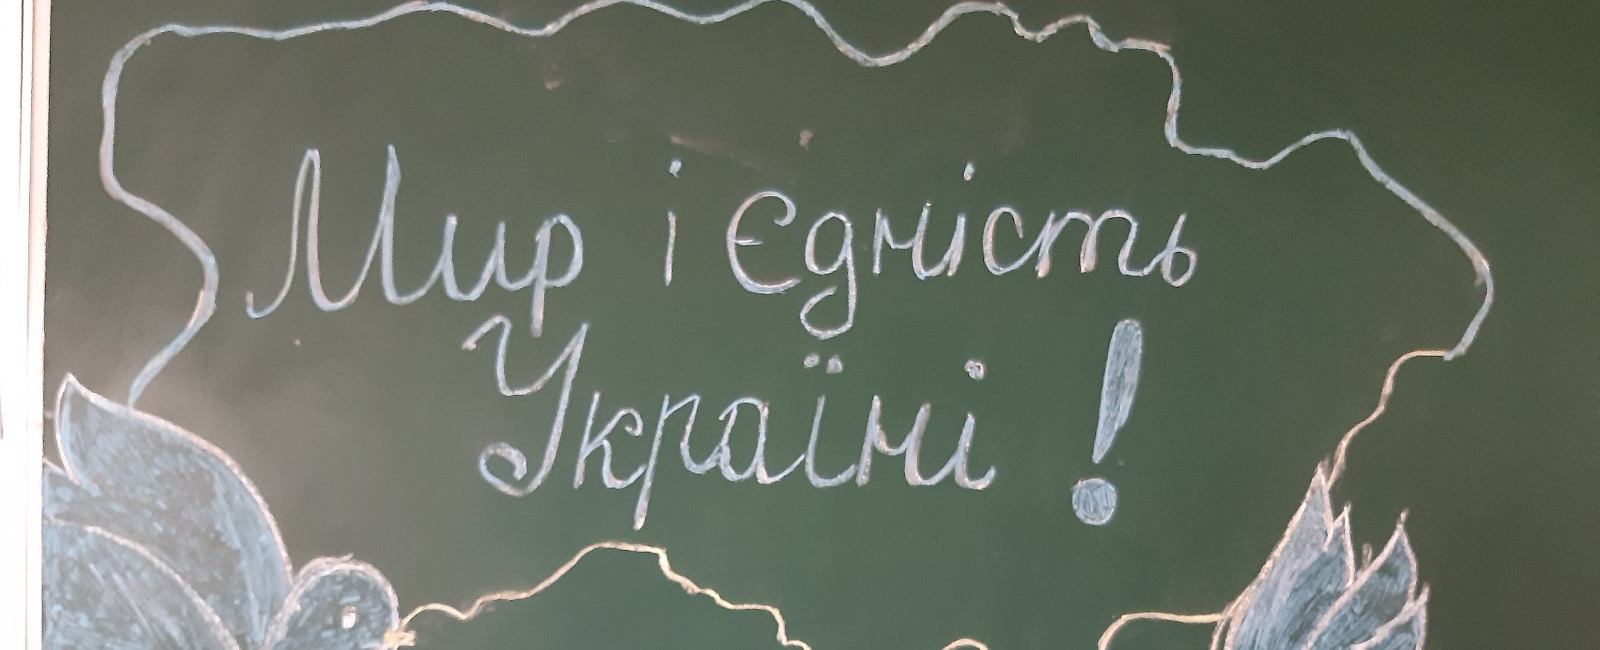 Мир і Єдність
Україні !